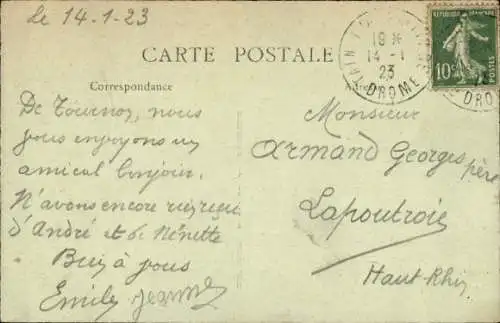 Le 14.1.23
TAIN
19
14 - 1
23
DROME
REPUBLIQUE FRANÇAISE
10c
POSTES
DRO
CARTE POSTALE
Correspondance
De Tournon, nous
vous envoyons un
amical bonjour.
N'avons encore rien reçu
d'André et de Nénette
Bien à vous
Emile Jeanne
Monsieur
Armand Georges père
Lapoutroie
Haut-Rhin